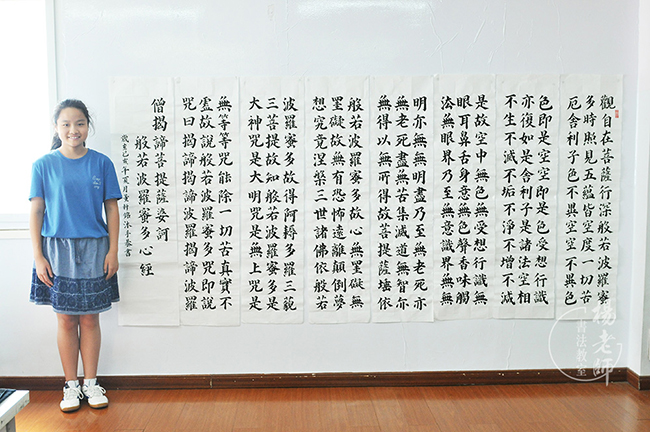 觀自在菩薩行深般若波羅蜜
多時照見五蘊皆空度一切苦
厄舍利子色不異空空不異色
色即是空空即是色受想行識
亦復如是舍利子是諸法空相
不生不滅不垢不淨不增不減
是故空中無色無受想行識無
眼耳鼻舌身意無色聲香味觸
法無眼界乃至無意識界無無
明亦無無明盡乃至無老死亦
無老死盡無苦集滅道無智亦
無得以無所得故菩提薩埵依
般若波羅蜜多故心無罣礙無
罣礙故無有恐怖遠離顛倒夢
想究竟涅槃三世諸佛依般若
波羅蜜多故得阿耨多羅三藐
三菩提故知般若波羅蜜多是
大神咒是大明咒是無上咒是
無等等咒能除一切苦真實不
虛故說般若波羅蜜多咒即說
咒曰揭諦揭諦波羅揭諦波羅
僧揭諦菩提薩婆訶
般若波羅蜜多心經
己亥年 沐手恭書
楊老師
書法教室